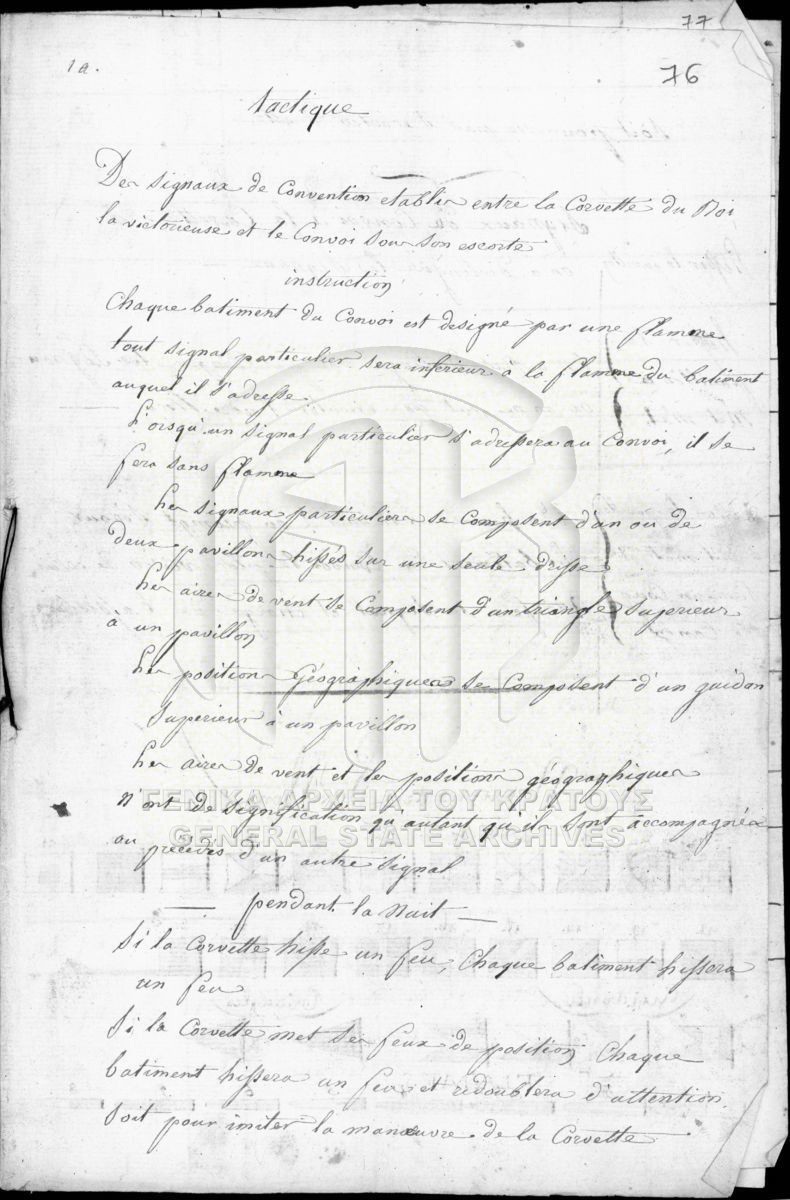 77
1a.
76
Tactique
Des signaux de Convention etablis entre la Corvette du Roi
la victorieuse et le Convoi sous son escorte
instruction
Chaque batiment du Convoi est designé par une flamme
tout signal particulier sera inferieur à la flamme du batiment
auquel il s'adresse
Lorsqu'un signal particulier s'adressera au Convoi, il se
fera sans flamme
Les signaux particuliers se Composent d'un ou de
deux pavillons hissés sur une seule drisse
Les aires de vent se Composent d'un triangle superieur
à un pavillon
Les positions Géographiques se Composent d'un guidon
Superieur à un pavillon
Les aires de vent et les positions géographiques
n'ont de signification qu'autant qu'ils sont accompagnés
ou précédés d'un autre signal
ΓΕΝΙΚΑ ΑΡΧΕΙΑ ΤΟΥ ΚΡΑΤΟΥΣ
GENERAL STATE ARCHIVES
— pendant la Nuit —
Si la Corvette hisse un feu, Chaque batiment hissera
un feu
Si la Corvette met ses feux de position Chaque
batiment hissera un feu et redoublera d'attention
soit pour imiter la manœuvre de la Corvette